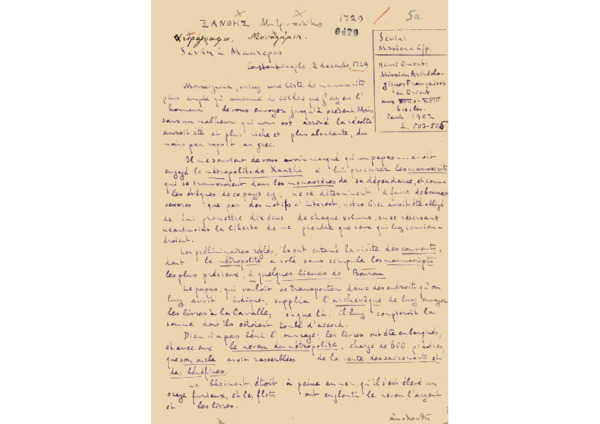 ΞΑΝΘΗΣ 1729 5a
0470
Χειρόγραφα. Μοναστήρια.
Sevin à Maurepas
Constantinople, 2 décembre, 1729
Sevin:
Missions C/p.
Henri Omont:
Missions Archéologiques Françaises
en Orient
aux XVII et XVIII
Siècles.
Paris 1902
Σ. 503-505
Monseigneur, voicy une liste de manuscrits
plus ample qu'aucune de celles que j'ay eu l'
honneur de vous envoyer jusqu'à présent. Mais
sans un malheur qui nous est arrivé la récolte
auroit été et plus riche et plus abondante, du
moins par rapport au grec.
Il me souvient de vous avoir marqué qu'un papas... avoit
engagé le métropolite de Xanthi à lui procurer les manuscrits
qui se trouveroient dans les monastères de sa dépendance, et comme
les évêques de ce pays cy ne se déterminent à faire de bonnes
oeuvres que par des motifs d'interest, notre Grec avoit été obligé
de lui promettre dix écus de chaque volume, en se réservant
néantmoins la liberté de ne prendre que ceux qui luy conviendroient.
Les préliminaires réglés, ils ont entamé la visite des couvents,
dont le métropolite a volé sans scrupule les manuscripts
les plus précieux, à quelques lieues de
Le papas, qui vouloit se transporter dans des endroits qu'on
luy avoit indiqué, supplia l'archevêque de luy envoyer
les livres à la Cavalle, où
somme dont ils étoient d'accord.
Dieu n'a pas béni l'ouvrage; les livres ont été embarqués,
et avec eux le neveu du métropolite, chargé de 600 piastres
que son oncle avoit rassemblées de la vente des sacrements et
des bénéfices.
Le bâtiment étoit à peine en mer qu'il s'est élevé un
orage furieux, et les flots ont englouti le neveu, l'argent
et les livres.